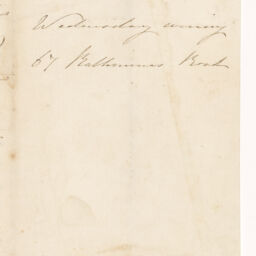 Wednesday evening
67 Rathmines Road